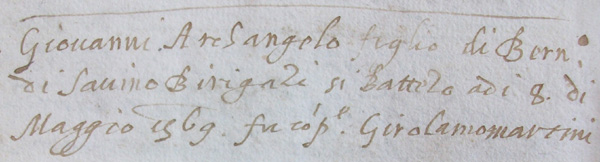 Giovanni Archangelo figlio di Bern.o
di Savino Birigazi si Battezo adi 8. di
Maggio 1569. fu cōp.e Girolamo martini